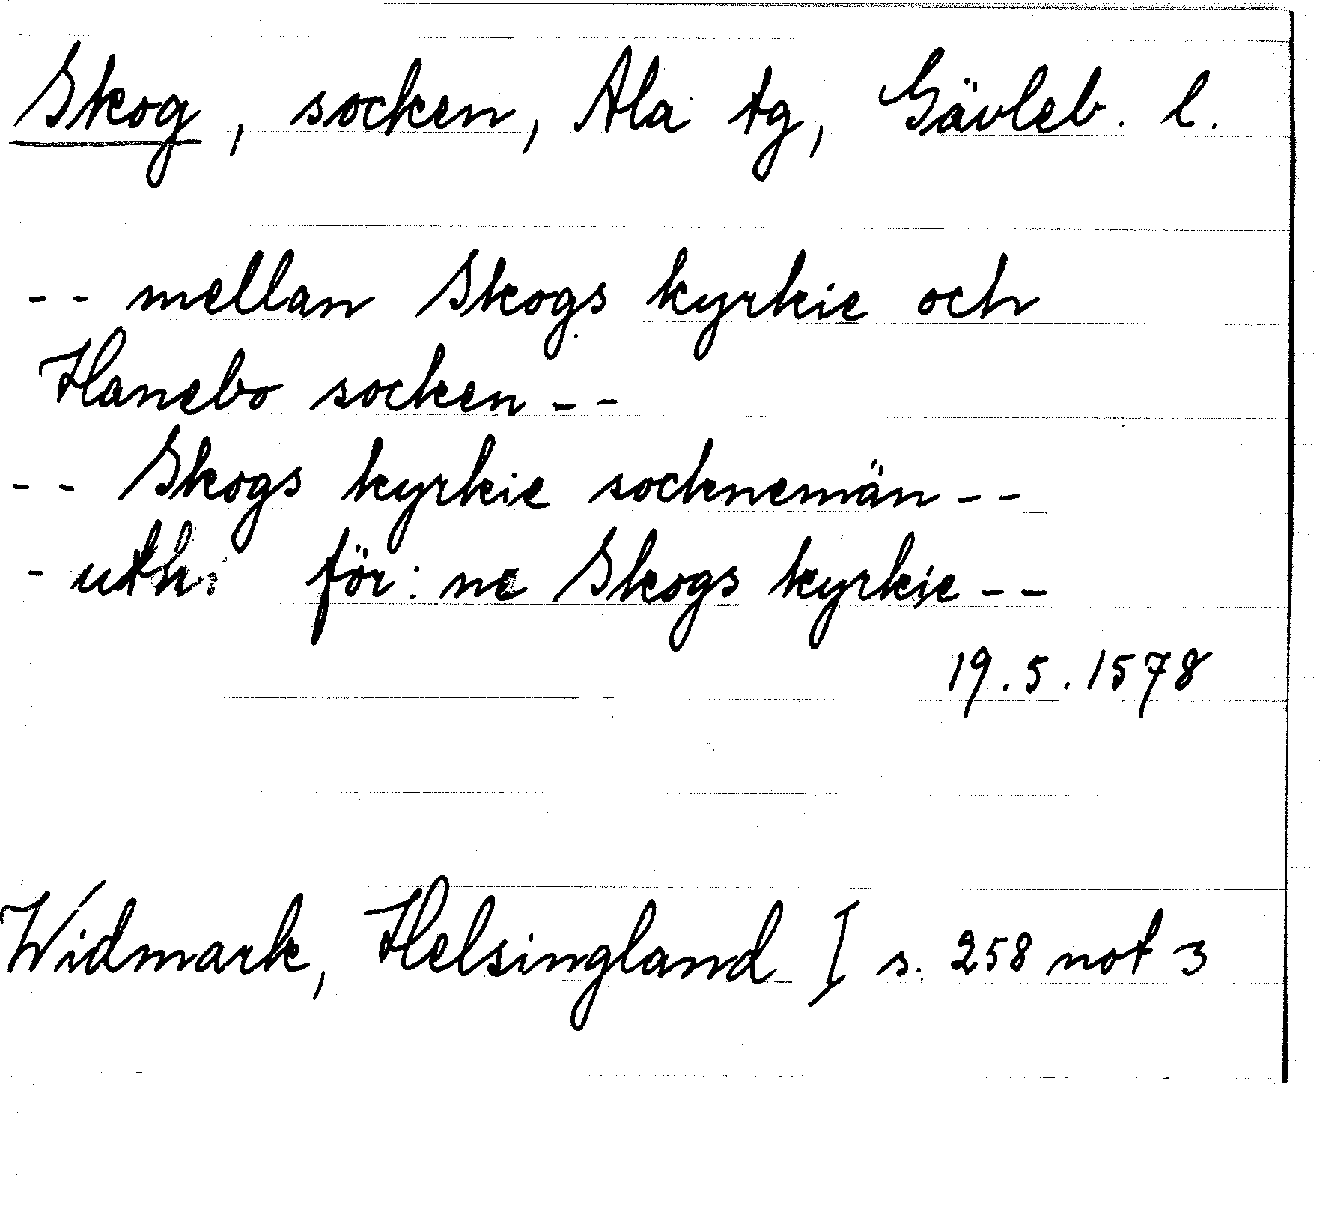 Skog, socken, Ala tg, Gävleb. l.
-- mellan Skogs kyrkie och
Hanebo socken --
-- Skogs kyrkie socknemän --
- uthi för: ne Skogs kyrkie --
19.5.1578
Widmark, Helsingland I s. 258 not 3